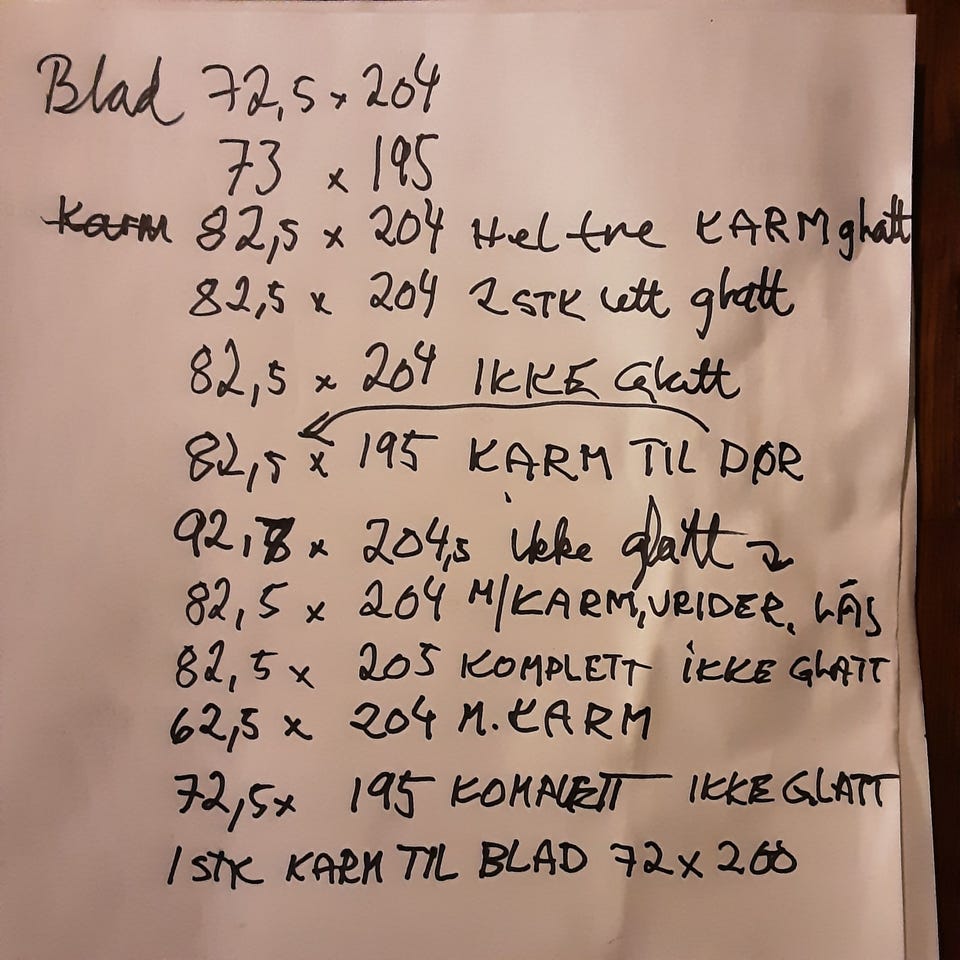 Blad 72,5 x 204
73 x 195
Karm 82,5 x 204 Hel tre KARM glatt
82,5 x 204 2 STK lett glatt
82,5 x 204 IKKE Glatt
82,5 x 195 KARM TIL DØR
92,8 x 204,5 ikke glatt
82,5 x 204 M/KARM, VRIDER, LÅS
82,5 x 205 KOMPLETT iKKE GLATT
62,5 x 204 M. KARM
72,5x 195 KOMPLETT IKKE GLATT
1 STK KARM TIL BLAD 72 x 200